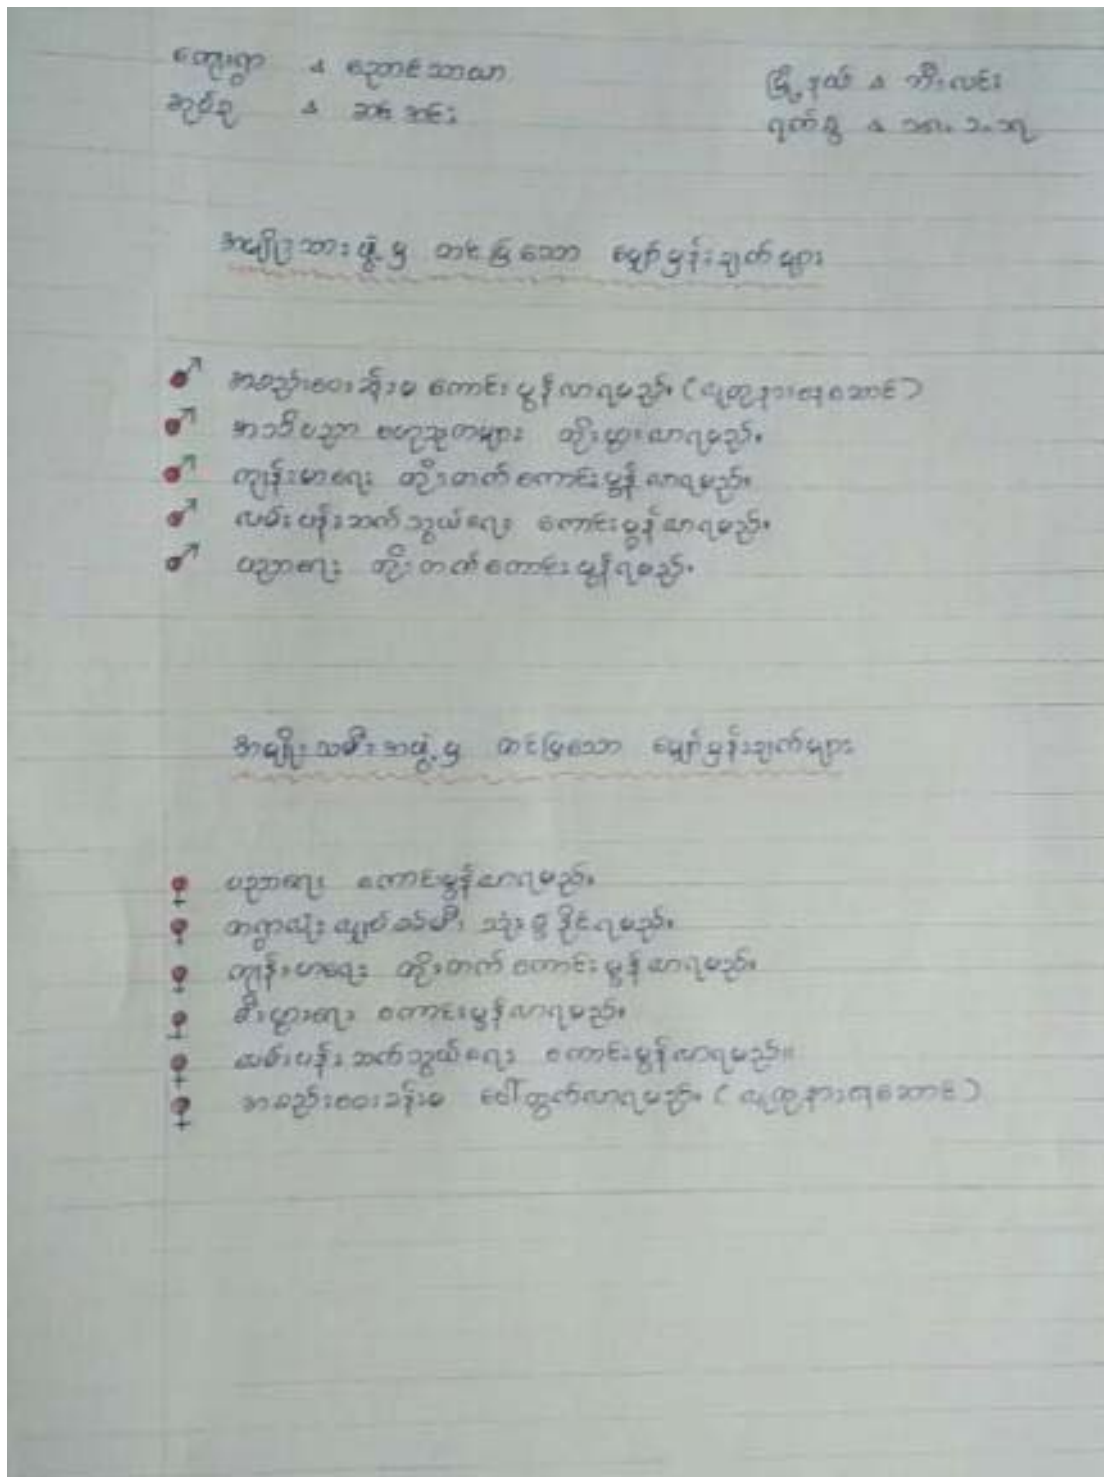 ကျေးရွာ း ညောင်သာယာ
မြို့နယ် း ဘီးလင်း
အုပ်စု း ဆင်အင်း
ရက်စွဲ း
အမျိုးသားဖွဲ့မှ တင်ပြသော မျှော်မှန်းချက်များ
အစည်းဝေးခန်းမ ကောင်းမွန်လာရမည်။ (လူထုနားနေဆောင်)
အသိပညာ ဗဟုသုတများ တိုးပွားလာရမည်။
ကျန်းမာရေး တိုးတက်ကောင်းမွန်လာရမည်။
လမ်းပန်းဆက်သွယ်ရေး ကောင်းမွန်လာရမည်။
ပညာရေး တိုးတက်ကောင်းမွန်ရမည်။
အမျိုးသမီးအဖွဲ့မှ တင်ပြသော မျှော်မှန်းချက်များ
ပညာရေး ကောင်းမွန်လာရမည်။
တရွာလုံးလျှပ်စစ်မီး သုံးစွဲနိုင်ရမည်။
ကျန်းမာရေး တိုးတက်ကောင်းမွန်လာရမည်။
စီးပွားရေး ကောင်းမွန်လာရမည်။
လမ်းပန်းဆက်သွယ်ရေး ကောင်းမွန်လာရမည်။
အစည်းဝေးခန်းမ ပေါ်ထွက်လာရမည်။ (လူထုနားနေဆောင်)